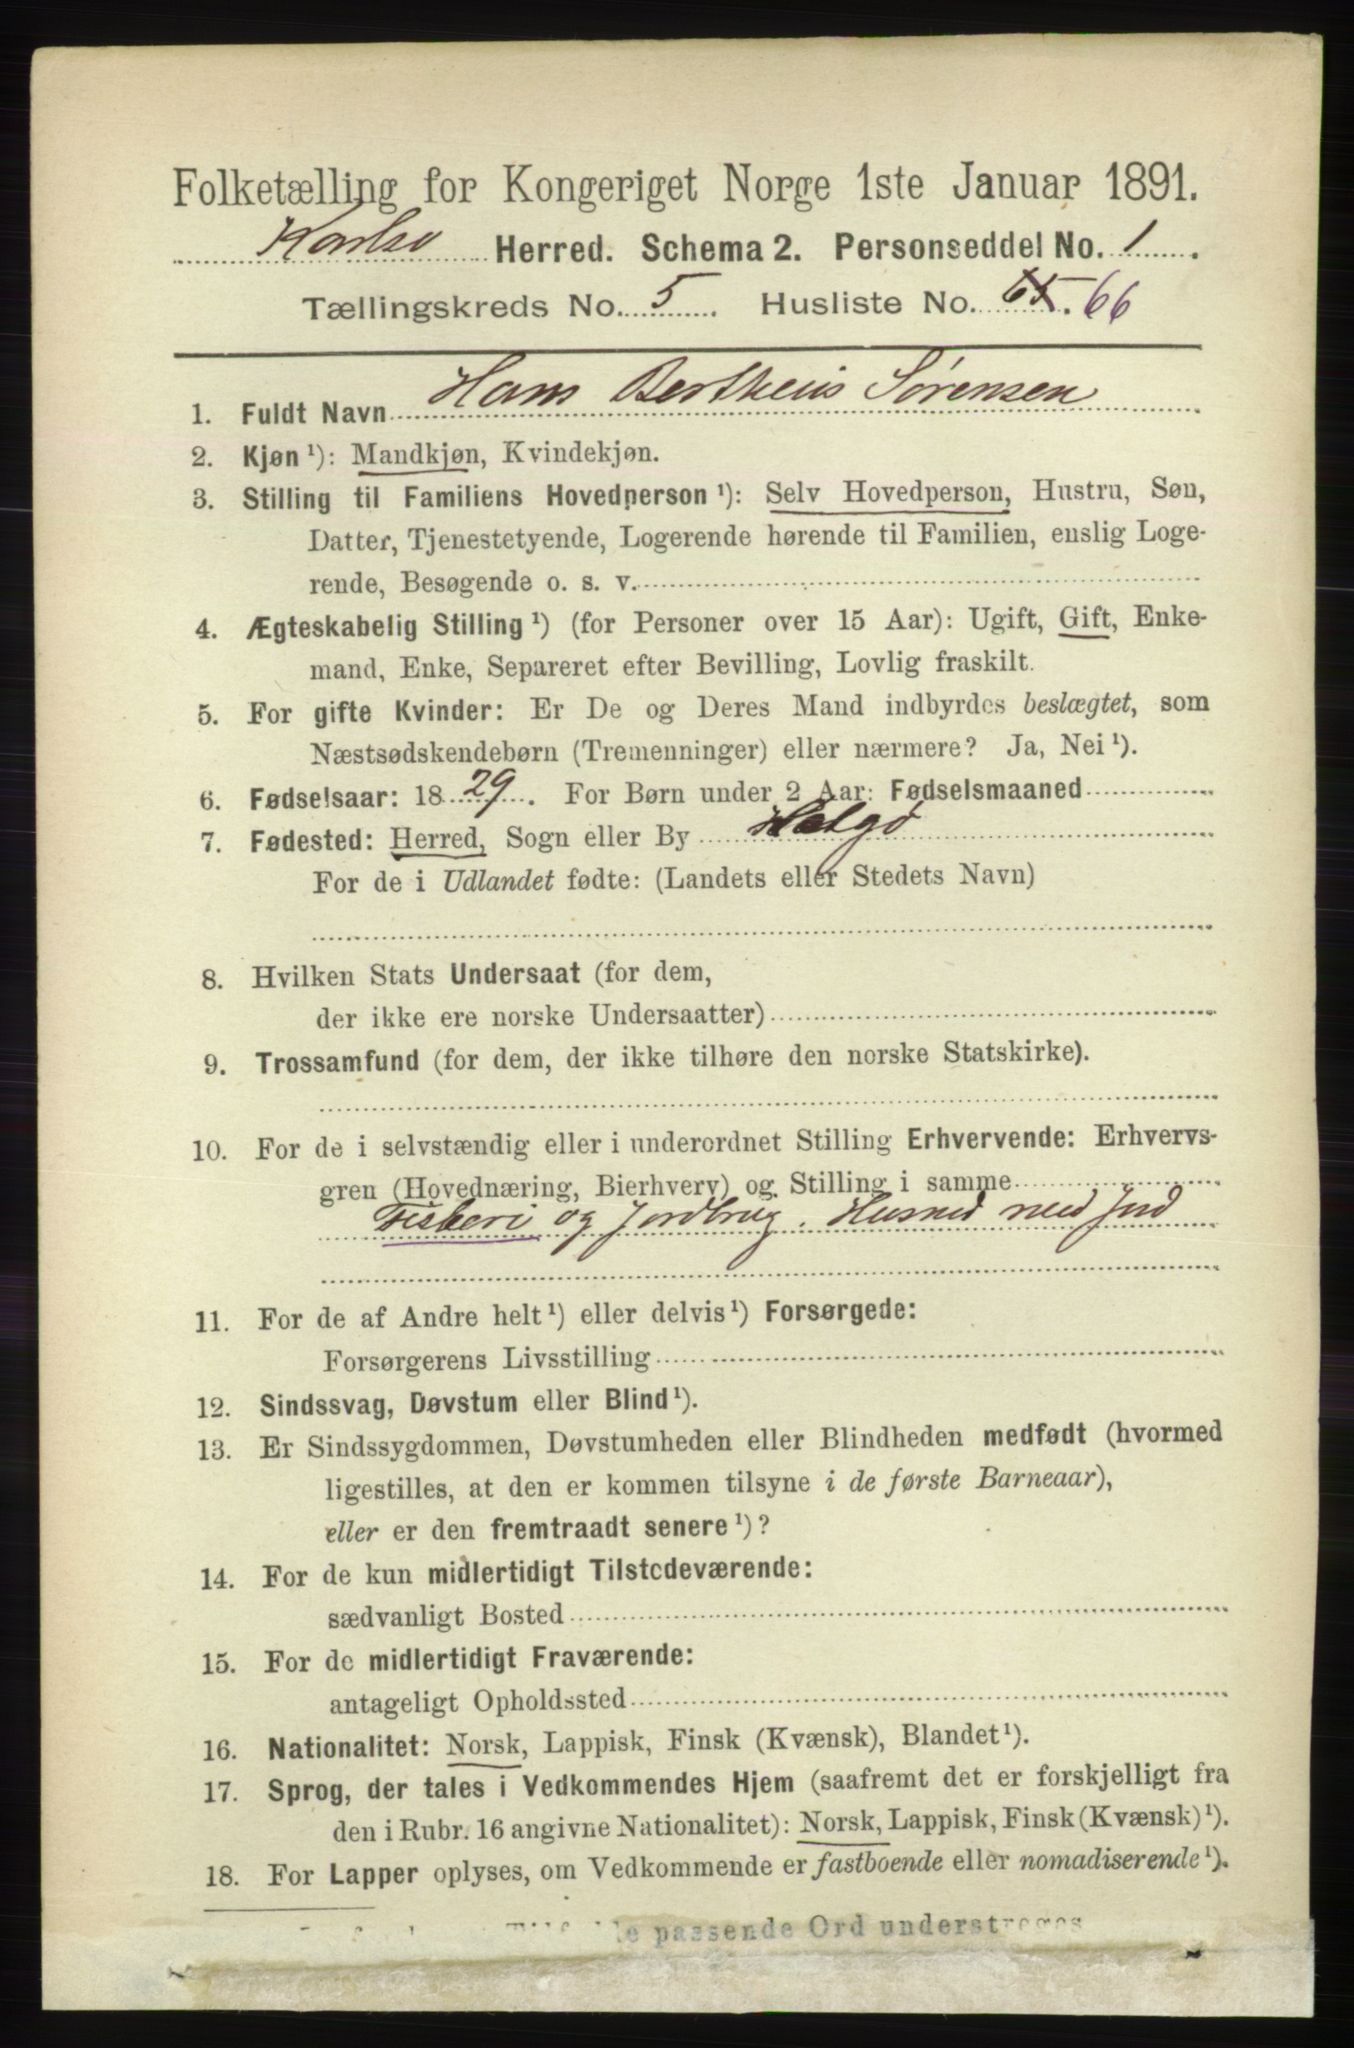 Folketælling for Kongeriget Norge 1ste Januar 1891.
Karlsø Herred. Schema 2. Personseddel No. 1.
Tællingskreds No. 5. Husliste No. 65. 66
1. Fuldt Navn Hans Bertheus Sørensen
2. Kjøn ¹): Mandkjøn, Kvindekjøn.
3. Stilling til Familiens Hovedperson ¹): Selv Hovedperson, Hustru, Søn,
Datter, Tjenestetyende, Logerende hørende til Familien, enslig Loge-
rende, Besøgende o. s. v.
4. Ægteskabelig Stilling ¹) (for Personer over 15 Aar): Ugift, Gift, Enke-
mand, Enke, Separeret efter Bevilling, Lovlig fraskilt.
5. For gifte Kvinder: Er De og Deres Mand indbyrdes beslægtet, som
Næstsødskendebørn (Tremenninger) eller nærmere? Ja, Nei ¹).
6. Fødselsaar: 1829. For Børn under 2 Aar: Fødselsmaaned
7. Fødested: Herred, Sogn eller By Helgø
For de i Udlandet fødte: (Landets eller Stedets Navn)
8. Hvilken Stats Undersaat (for dem,
der ikke ere norske Undersaatter)
9. Trossamfund (for dem, der ikke tilhøre den norske Statskirke).
10. For de i selvstændig eller i underordnet Stilling Erhvervende: Erhvervs-
gren (Hovednæring, Bierhverv) og Stilling i samme
Fiskeri og Jordbrug. Husmd med Jord
11. For de af Andre helt ¹) eller delvis ¹) Forsørgede:
Forsørgerens Livsstilling
12. Sindssvag, Døvstum eller Blind ¹).
13. Er Sindssygdommen, Døvstumheden eller Blindheden medfødt (hvormed
ligestilles, at den er kommen tilsyne i de første Barneaar),
eller er den fremtraadt senere ¹)?
14. For de kun midlertidigt Tilstedeværende:
sædvanligt Bosted
15. For de midlertidigt Fraværende:
antageligt Opholdssted
16. Nationalitet: Norsk, Lappisk, Finsk (Kvænsk), Blandet ¹).
17. Sprog, der tales i Vedkommendes Hjem (saafremt det er forskjelligt fra
den i Rubr. 16 angivne Nationalitet): Norsk, Lappisk, Finsk (Kvænsk) ¹).
18. For Lapper oplyses, om Vedkommende er fastboende eller nomadiserende ¹).
passende Ord understreges